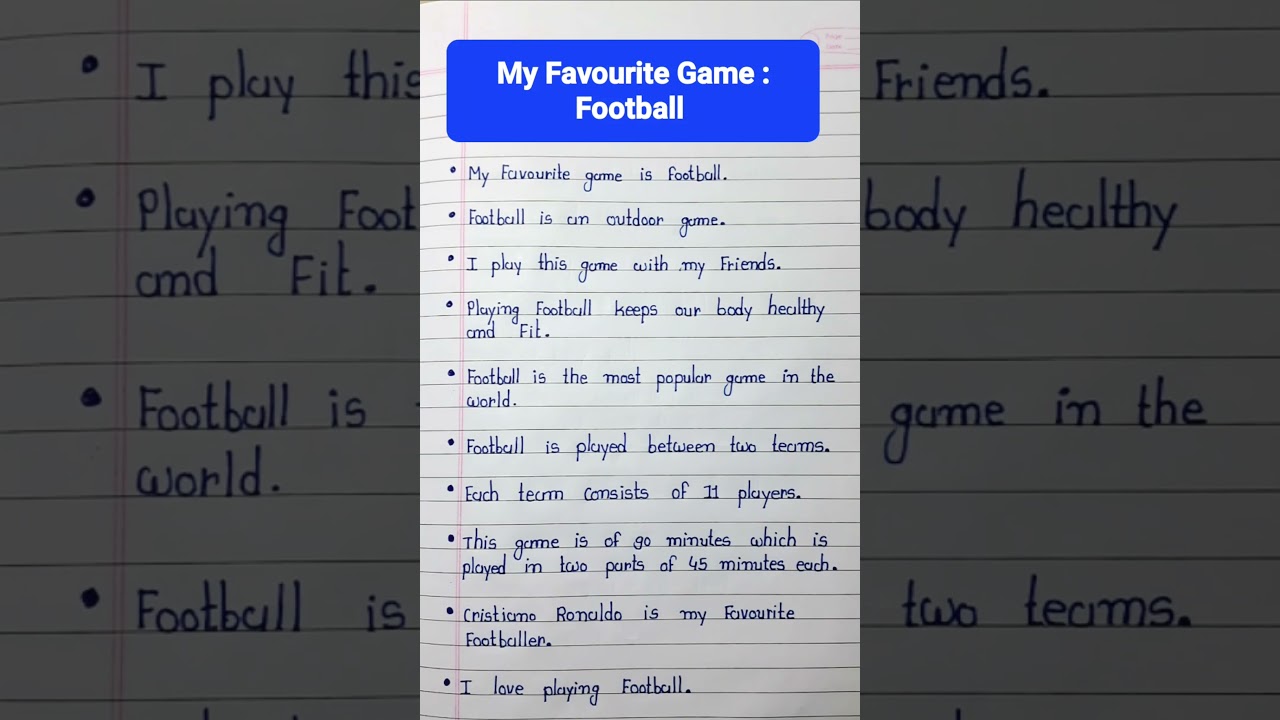 My Favourite Game :
Football
• My Favourite game is football.
• Football is an outdoor game.
• I play this game with my Friends.
• Playing Football keeps our body healthy
and Fit.
• Football is the most popular game in the
world.
• Football is played between two teams.
• Each team consists of 11 players.
• This game is of 90 minutes which is
played in two parts of 45 minutes each.
• Cristiano Ronaldo is my Favourite
Footballer.
• I love playing Football.
• I play this
Friends.
• Playing Foot
body healthy
and Fit.
• Football is
game in the
world.
• Football is
two teams.